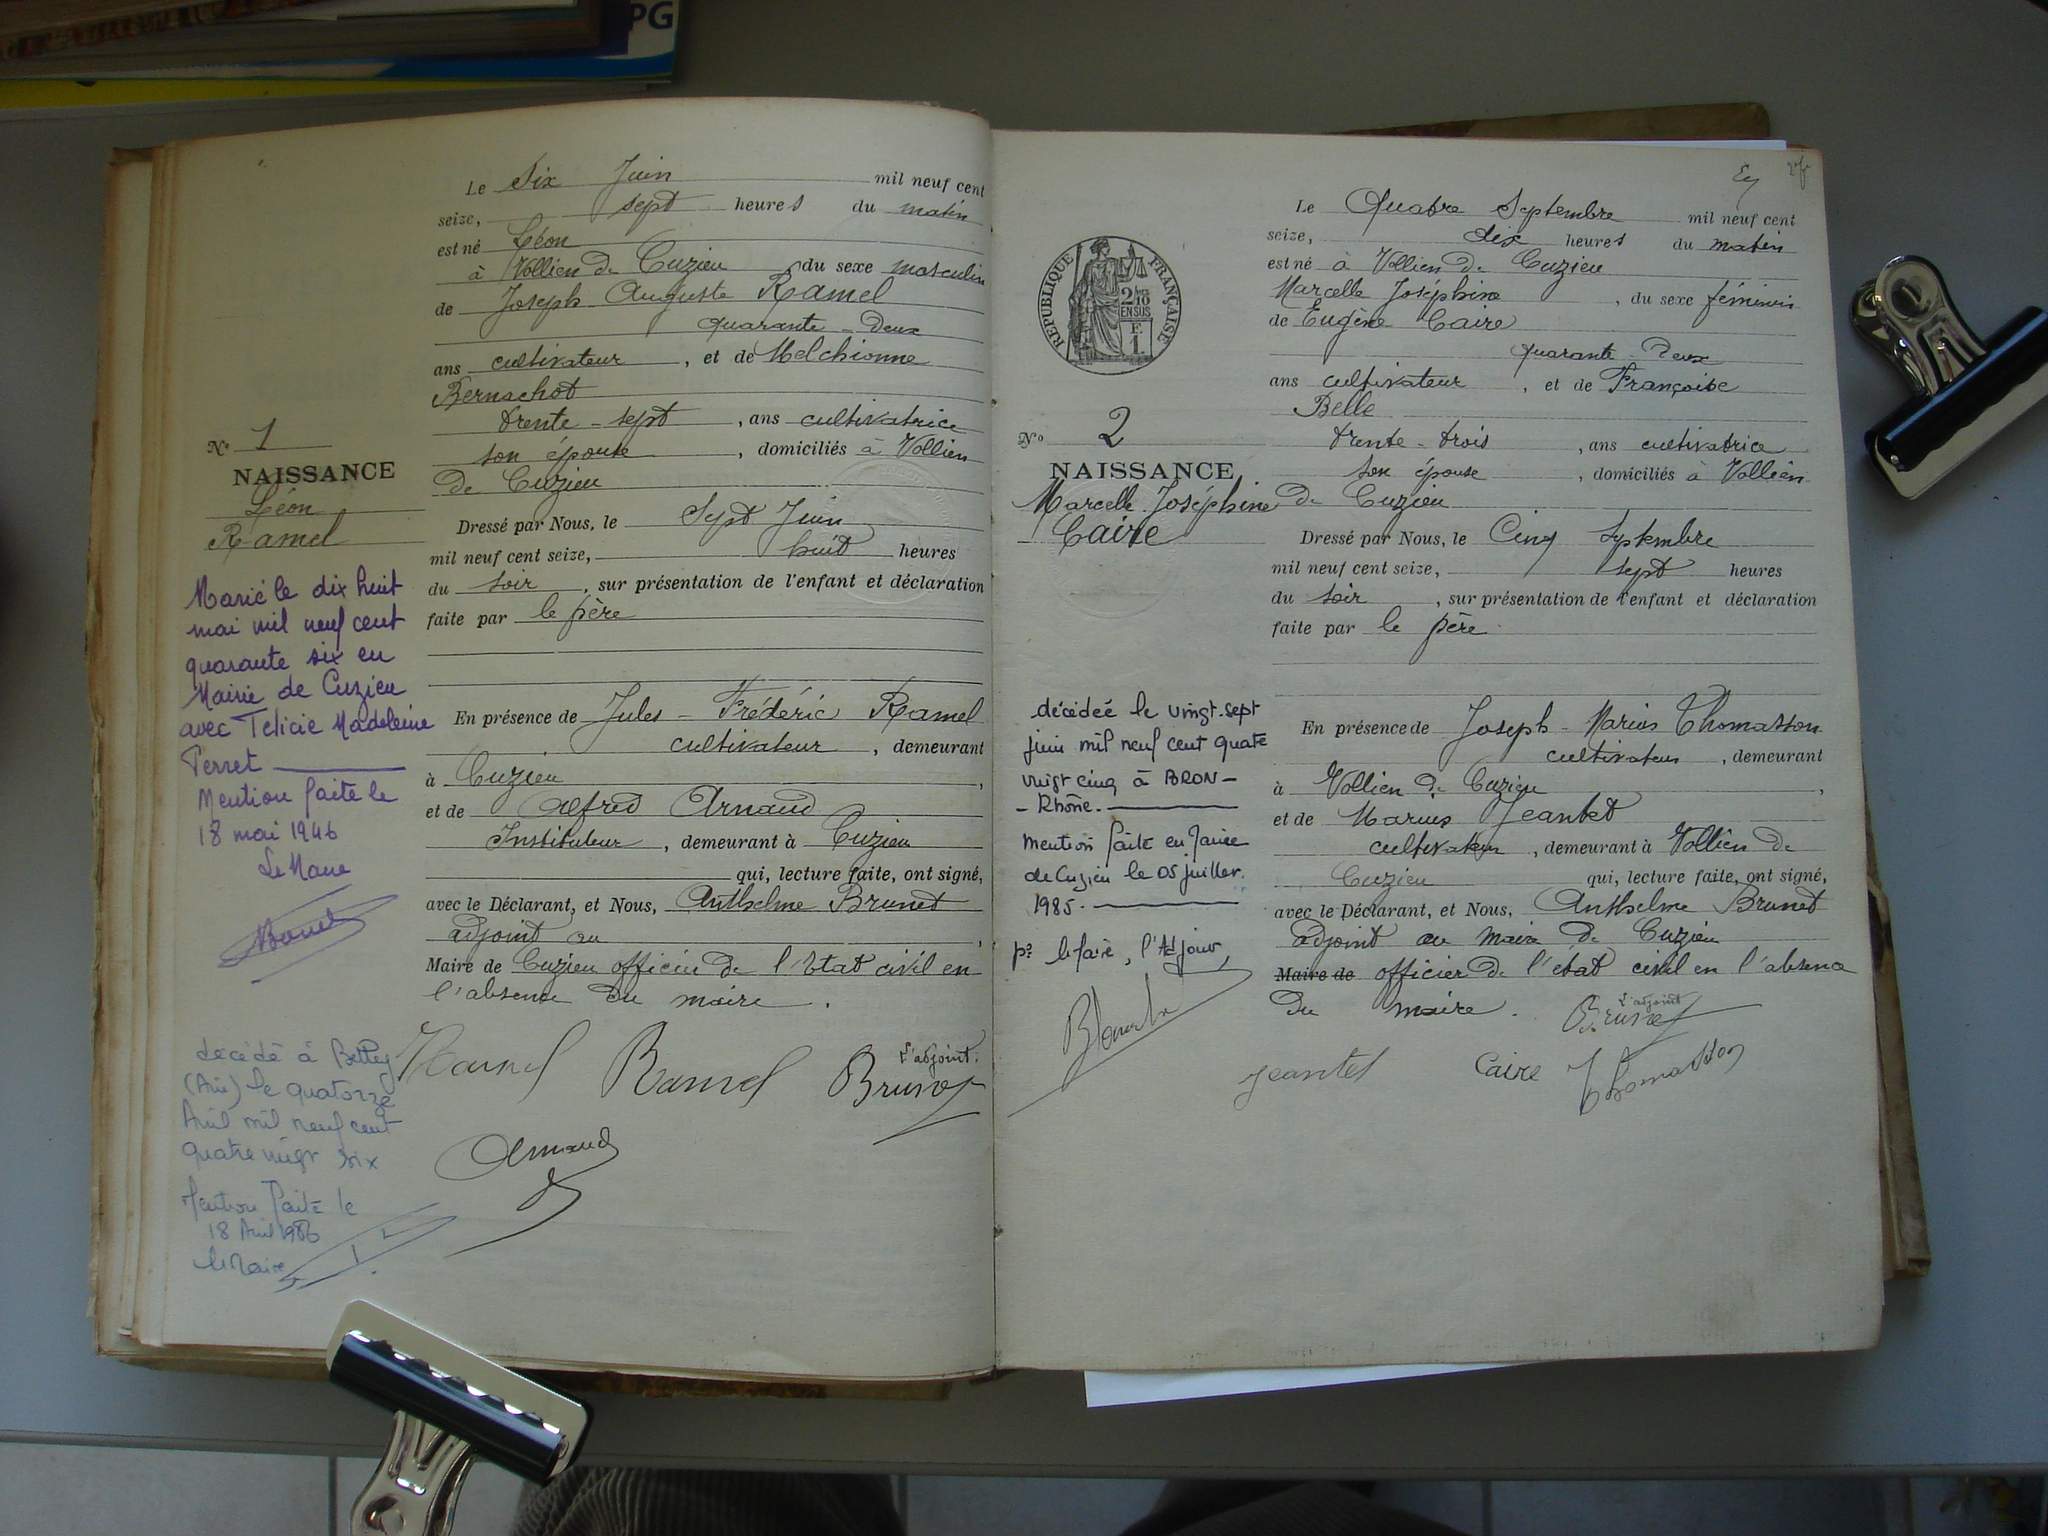 PG
Le Six Juin mil neuf cent
seize, sept heures du matin
est né Léon
à Vollien de Cuzieu du sexe masculin
de Joseph Auguste Ramel
quarante-deux
ans cultivateur, et de Melchionne
Bernachot
trente-sept, ans cultivatrice
son épouse, domiciliés à Vollien
de Cuzieu
Dressé par Nous, le Sept Juin
mil neuf cent seize, huit heures
du soir, sur présentation de l'enfant et déclaration
faite par le père
En présence de Jules-Frédéric Ramel
cultivateur, demeurant
à Cuzieu,
et de Alfred Arnaud
Instituteur, demeurant à Cuzieu
qui, lecture faite, ont signé,
avec le Déclarant, et Nous, Anthelme Brunet
adjoint au,
Maire de Cuzieu officier de l'Etat civil en
l'absence du maire.
Ramel Ramel L'adjoint.
Brunet
Arnaud
N° 1
NAISSANCE
Léon
Ramel
Marié le dix huit
mai mil neuf cent
quarante six en
Mairie de Cuzieu
avec Félicie Madeleine
Perret
Mention faite le
18 mai 1946
Le Maire
décédé à
(Ain) le quatorze
Avril mil neuf cent
quatre vingt six
Mention faite le
18 Avril 1986
le Maire
REPUBLIQUE FRANÇAISE
2/10
EN SUS
F.
1.
N° 2
NAISSANCE
Marcelle Joséphine
Caire
décédée le vingt-sept
juin mil neuf cent quatre
vingt cinq à BRON-
-Rhône.
mention faite en mairie
de Cuzieu le 05 juillet
1985.
pr le Maire, l'Adjoint,
Le Quatre Septembre mil neuf cent
seize, dix heures du matin
est né à Vollien de Cuzieu
Marcelle Joséphine, du sexe féminin
de Eugène Caire
quarante-deux
ans cultivateur, et de Françoise
Belle
trente-trois, ans cultivatrice
son épouse, domiciliés à Vollien
de Cuzieu
Dressé par Nous, le Cinq Septembre
mil neuf cent seize, sept heures
du soir, sur présentation de l'enfant et déclaration
faite par le père
En présence de Joseph-Marius Thomasson
cultivateur, demeurant
à Vollien de Cuzieu,
et de Marius Jeantet
cultivateur, demeurant à Vollien de
Cuzieu qui, lecture faite, ont signé,
avec le Déclarant, et Nous, Anthelme Brunet
adjoint au maire de Cuzieu
Maire de officier de l'état civil en l'absence
du maire. L'adjoint
Brunet
Jeantet Caire Thomasson